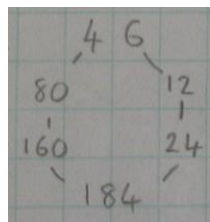 4 6
80 12
160 24
184